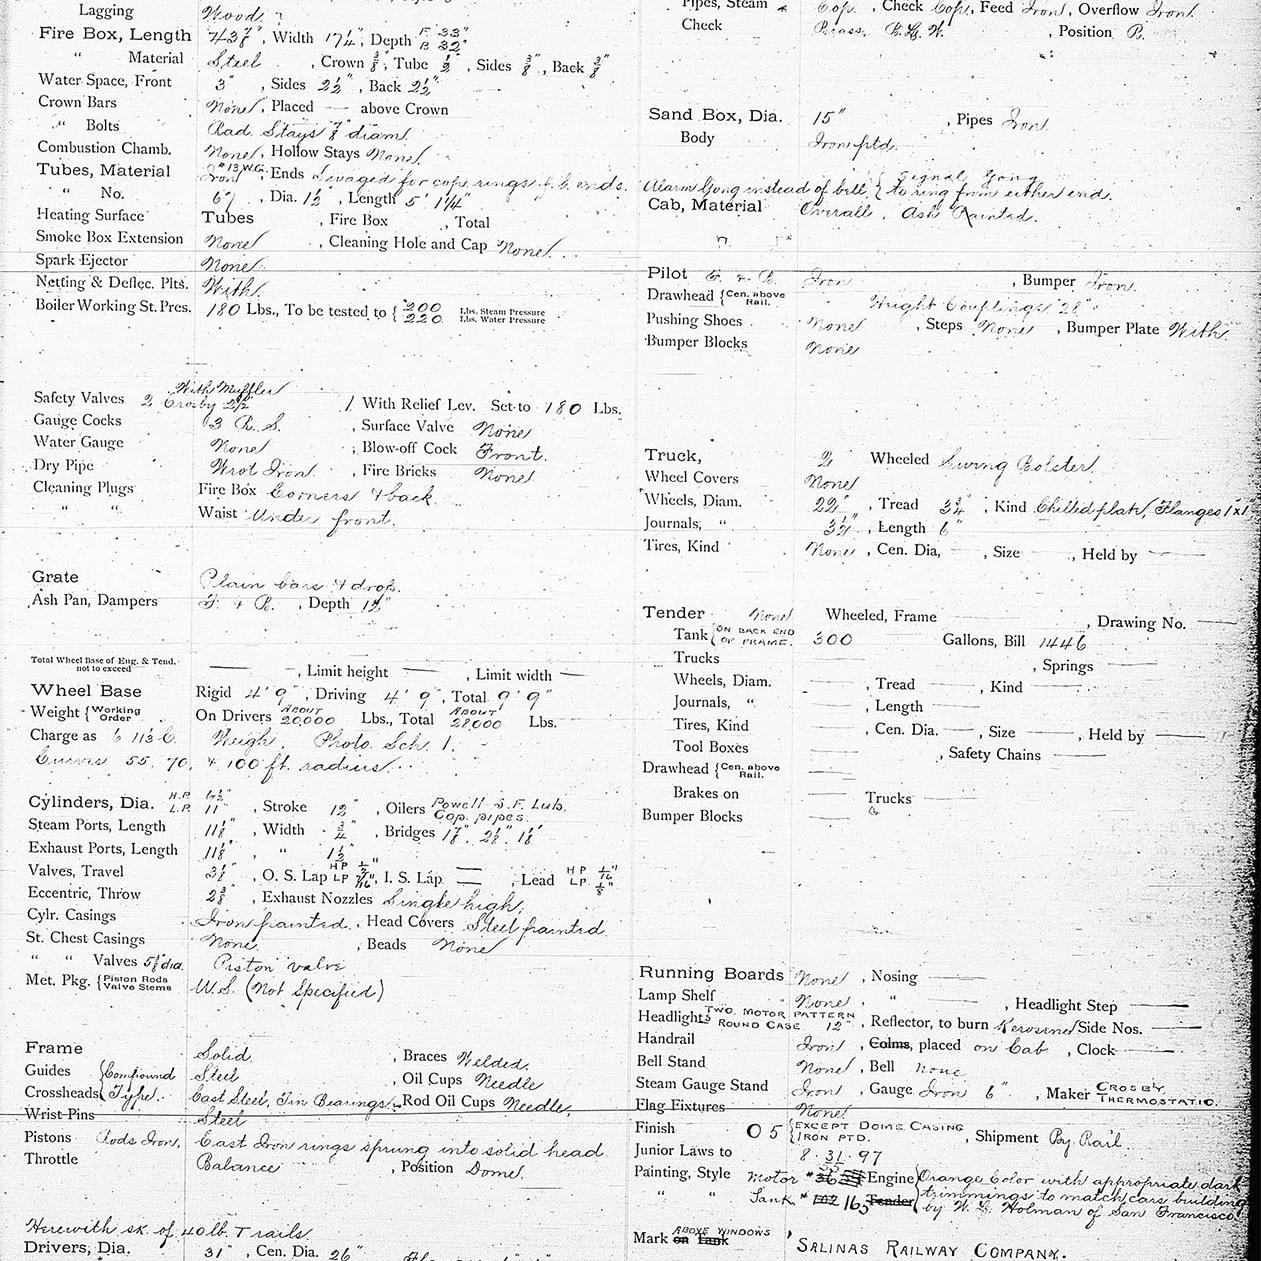 Lagging Wood.
Fire Box, Length 43 7/8", Width 17 1/4", Depth F. 33" B. 32"
" Material Steel, Crown 3/8", Tube 1/2", Sides 3/8", Back 3/8"
Water Space, Front 3", Sides 2 1/2", Back 2 1/2"
Crown Bars None, Placed — above Crown
" Bolts Rad. Stays 7/8" diam.
Combustion Chamb. None, Hollow Stays None.
Tubes, Material Iron #13 W.G., Ends Swaged for cop. rings f.b. ends.
" No. 67, Dia. 1 1/2", Length 5' 1 1/4"
Heating Surface Tubes , Fire Box , Total
Smoke Box Extension None , Cleaning Hole and Cap None.
Spark Ejector None.
Netting & Deflec. Plts. With.
Boiler Working St. Pres. 180 Lbs., To be tested to { 200 Lbs. Steam Pressure 220 Lbs. Water Pressure
With Muffler
Safety Valves 2 Crosby 2 1/2" 1 With Relief Lev. Set to 180 Lbs.
Gauge Cocks 3 R. S. , Surface Valve None
Water Gauge None , Blow-off Cock Front.
Dry Pipe Wrot Iron , Fire Bricks None
Cleaning Plugs Fire Box Corners & back.
" " Waist Under front.
Grate Plain bars & drop.
Ash Pan, Dampers F. & B. , Depth 12"
Total Wheel Base of Eng. & Tend. not to exceed — , Limit height — , Limit width —
Wheel Base Rigid 4' 9", Driving 4' 9", Total 9' 9"
Weight { Working Order On Drivers ABOUT 20,000 Lbs., Total ABOUT 28,000 Lbs.
Charge as 6 11 1/3 C. Weigh. Photo. Sch. 1.
Curves 55, 70, & 100 ft. radius.
Cylinders, Dia. H.P. 6 1/2" L.P. 11", Stroke 12", Oilers Powell S.F. Lub. Cop. pipes.
Steam Ports, Length 11 1/8", Width 3/4", Bridges 1 7/8", 2 1/8", 1 1/8"
Exhaust Ports, Length 11 1/8", " 1 1/2"
Valves, Travel 3 1/2", O. S. Lap HP 1/2" LP 7/16", I. S. Lap —, Lead HP 1/16" LP 1/8"
Eccentric, Throw 2 3/8", Exhaust Nozzles Single high.
Cylr. Casings Iron painted. , Head Covers Steel painted.
St. Chest Casings None. , Beads None
" " Valves 5 1/8" dia. Piston valve
Met. Pkg. { Piston Rods Valve Stems U.S. (Not Specified)
Frame Solid , Braces Welded.
Guides { Compound Steel , Oil Cups Needle
Crossheads { Type. Cast Steel, Tin Bearings. Rod Oil Cups Needle.
Wrist Pins Steel
Pistons Rods Iron, Cast Iron rings sprung into solid head.
Throttle Balance , Position Dome.
Herewith sk. of 40 lb. T rails.
Drivers, Dia. 31", Cen. Dia. 26"
Pipes, Steam Cop. , Check Cop., Feed Iron, Overflow Iron.
Check Brass, , Position B.
Sand Box, Dia. 15" , Pipes Iron
Body Iron ptd.
Alarm Gong instead of bell { Signal Gong to ring from either end.
Cab, Material Overall, Ash Painted.
Pilot F. & B. Iron , Bumper Iron.
Drawhead { Cen. above Rail. Height Couplings 28"
Pushing Shoes None , Steps None , Bumper Plate With
Bumper Blocks None
Truck, 2 Wheeled Swing Bolster.
Wheel Covers None
Wheels, Diam. 22", Tread 3 3/4", Kind Chilled plate, Flanges 1"x1"
Journals, " 3 1/2", Length 6"
Tires, Kind None, Cen. Dia, — , Size — , Held by —
Tender None Wheeled, Frame , Drawing No. —
Tank { ON BACK END OF FRAME. 300 Gallons, Bill 1446
Trucks — , Springs —
Wheels, Diam. — , Tread — , Kind —
Journals, " — , Length —
Tires, Kind , Cen. Dia. — , Size — , Held by —
Tool Boxes — , Safety Chains —
Drawhead { Cen. above Rail. —
Brakes on — Trucks —
Bumper Blocks —
Running Boards None , Nosing —
Lamp Shelf None , " — , Headlight Step —
Headlights TWO MOTOR PATTERN ROUND CASE 12", Reflector, to burn Kerosene Side Nos. —
Handrail Iron , Colms, placed on Cab , Clock —
Bell Stand None , Bell None
Steam Gauge Stand Iron , Gauge Iron 6" , Maker CROSBY THERMOSTATIC.
Flag Fixtures None
Finish O 5 { EXCEPT DOME CASING IRON PTD. , Shipment By Rail
Junior Laws to 8·31·97
Painting, Style Motor # Engine { Orange Color with appropriate dark
" " Tank # 102 165 Tender trimmings to match cars building
by W. L. Holman of San Francisco.
Mark on Tank ABOVE WINDOWS "SALINAS RAILWAY COMPANY.